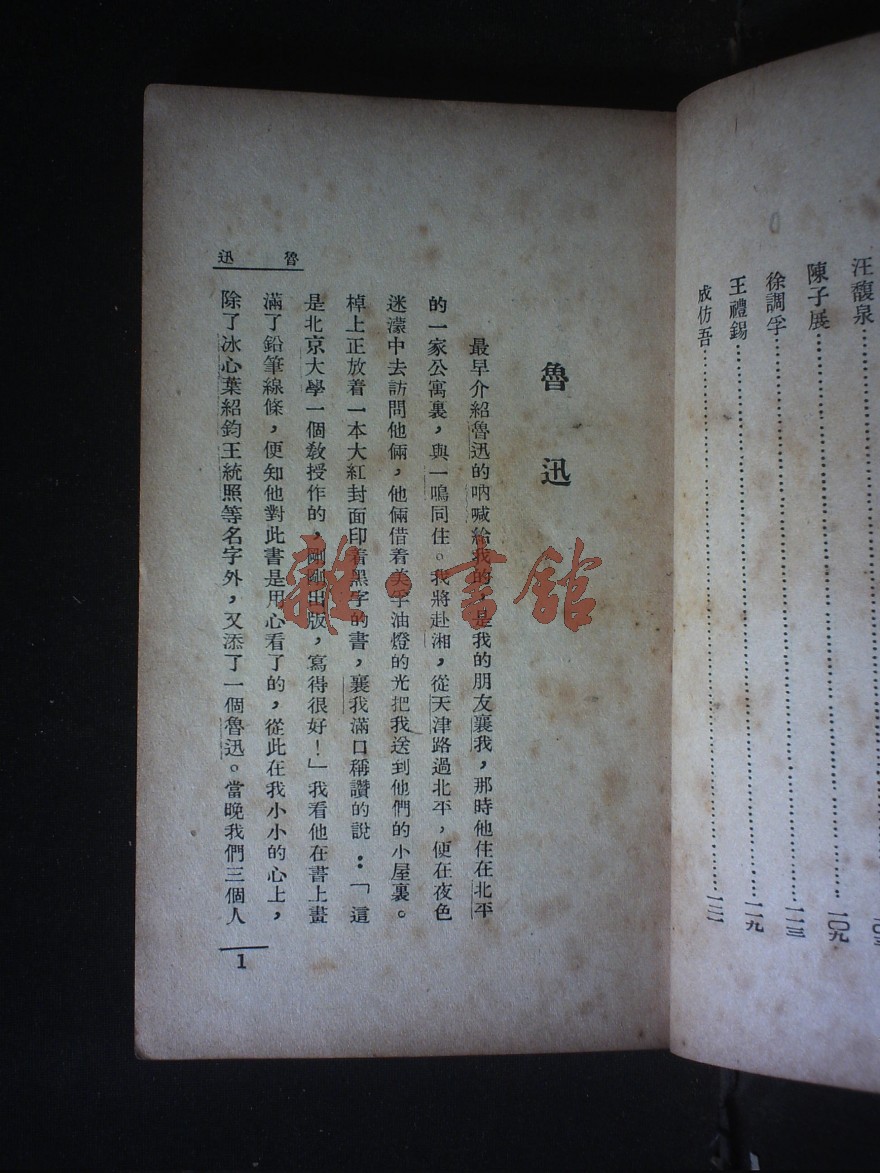 汪馥泉
陳子展……一〇九
徐調孚……一一三
王禮錫……一一九
成仿吾……一二一
魯迅
最早介紹魯迅的吶喊給我的，是我的朋友襄我，那時他住在北平
的一家公寓裏，與一鳴同住。我將赴湘，從天津路過北平，便在夜色
迷濛中去訪問他倆，他倆借着美孚油燈的光把我送到他們的小屋裏。
棹上正放着一本大紅封面印着黑字的書，襄我滿口稱讚的說：「這
是北京大學一個教授作的，剛剛出版，寫得很好！」我看他在書上畫
滿了鉛筆線條，便知他對此書是用心看了的，從此在我小小的心上，
除了冰心葉紹鈞王統照等名字外，又添了一個魯迅。當晚我們三個人
魯迅
1
雜·書館